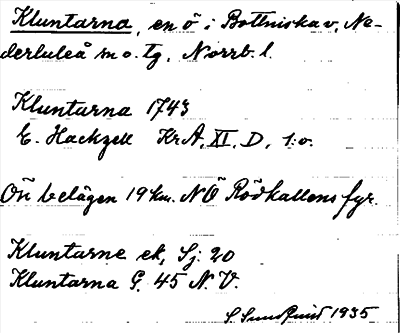 Kluntarna, en ö i Bottniska v, Ne-
derluleå sn o. tg, Norrb. l.
Kluntarna 1743
E. Hackzell KrA, XI, D, 1:o.
Ön belägen 19 km. NÖ Rödkallens fyr.
Kluntarne ek, Sj. 20
Kluntarna G. 45 N. V.
S. Sundqvist 1935